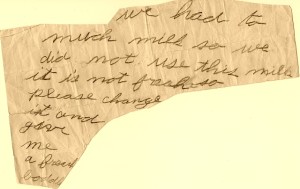 we had to
much milk so we
did not use this milk
it is not fresh so
please change
it and
give
me
a